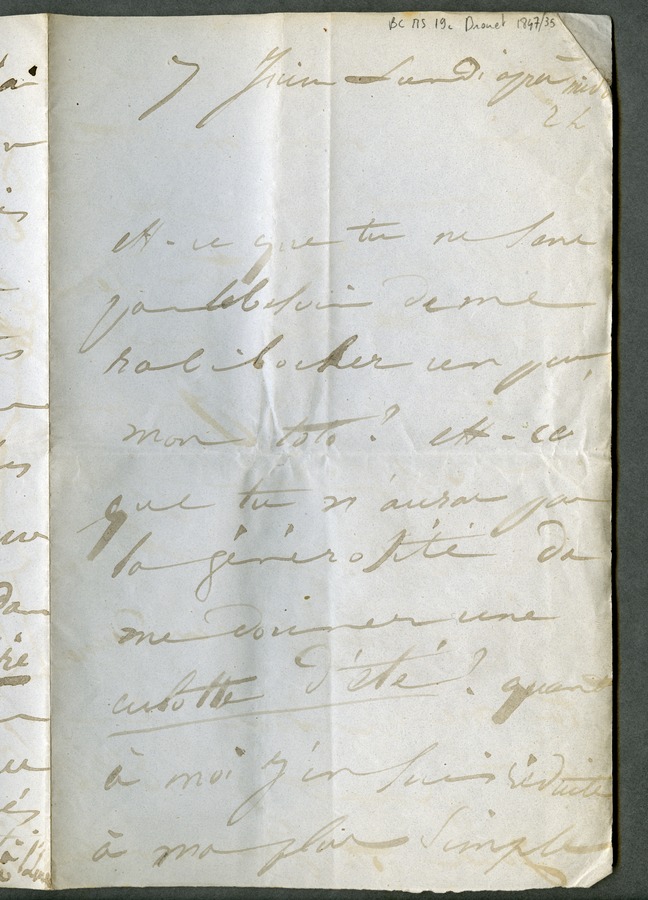 BC MS 19c Drouet 1847/35
7 Juin Lundi après midi
2 h
est-ce que tu ne sens
pas le besoin de me
rabibocher un peu,
mon toto? est-ce
que tu n'auras pas
la générosité de
me donner une
culotte d'été? quant
à moi j'en suis réduite
à ma plus simple